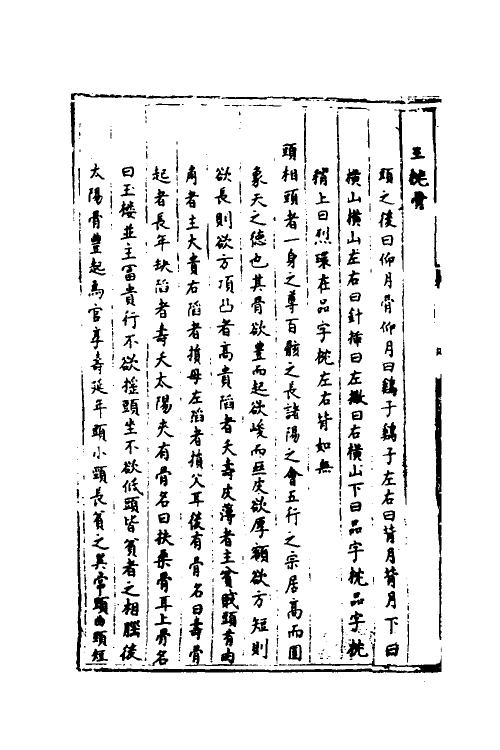 玉枕骨
頭之後曰仰月骨仰月曰鷄子鷄子左右曰背月背月下曰
橫山橫山左右曰針揷曰左撇曰右橫山下曰品字枕品字枕
稍上曰烈環在品字枕左右皆如無
頭相頭者一身之尊百骸之長諸陽之會五行之宗居高而圓
象天之德也其骨欲豊而起欲峻而皮欲厚額欲方短則
欲長則欲方項凸者高貴陷者夭壽皮薄者主貧賤頭有肉
角者主大貴右陷者損母左陷者損父耳後有骨名曰壽骨
起者長年缺陷者壽夭太陽夾有骨名曰扶桑骨耳上骨名
曰玉楼並主冨貴行不欲揺頭坐不欲低頭皆貧者之相腦後
太陽骨豊起為官享壽延年頭小頸長貧之異常頸短